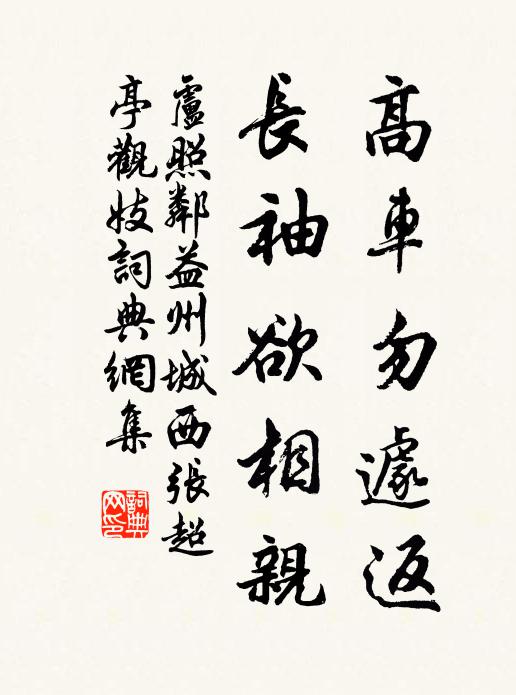 高車勿遽返
長袖欲相親
盧照鄰益州城西張超
亭觀妓詞典網集
詞典
网印